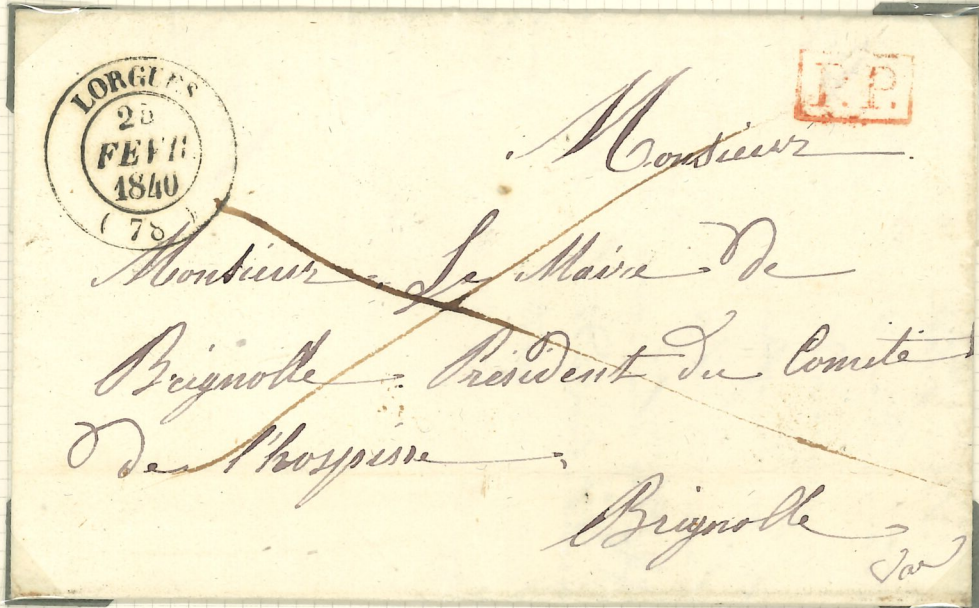 LORGUES
25
FEVR
1840
(78)
P.P.
Monsieur
Monsieur Le Maire de
Brignolle Président du Comité
de l'hospisse
Brignolle
Var